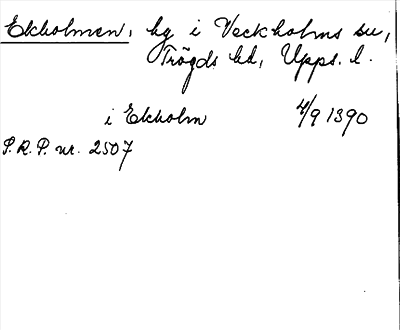 Ekholmen, hg i Veckholms sn,
Trögds hd, Upps. l.
i Ekholm 4/9 1390
S.R.P. nr. 2507